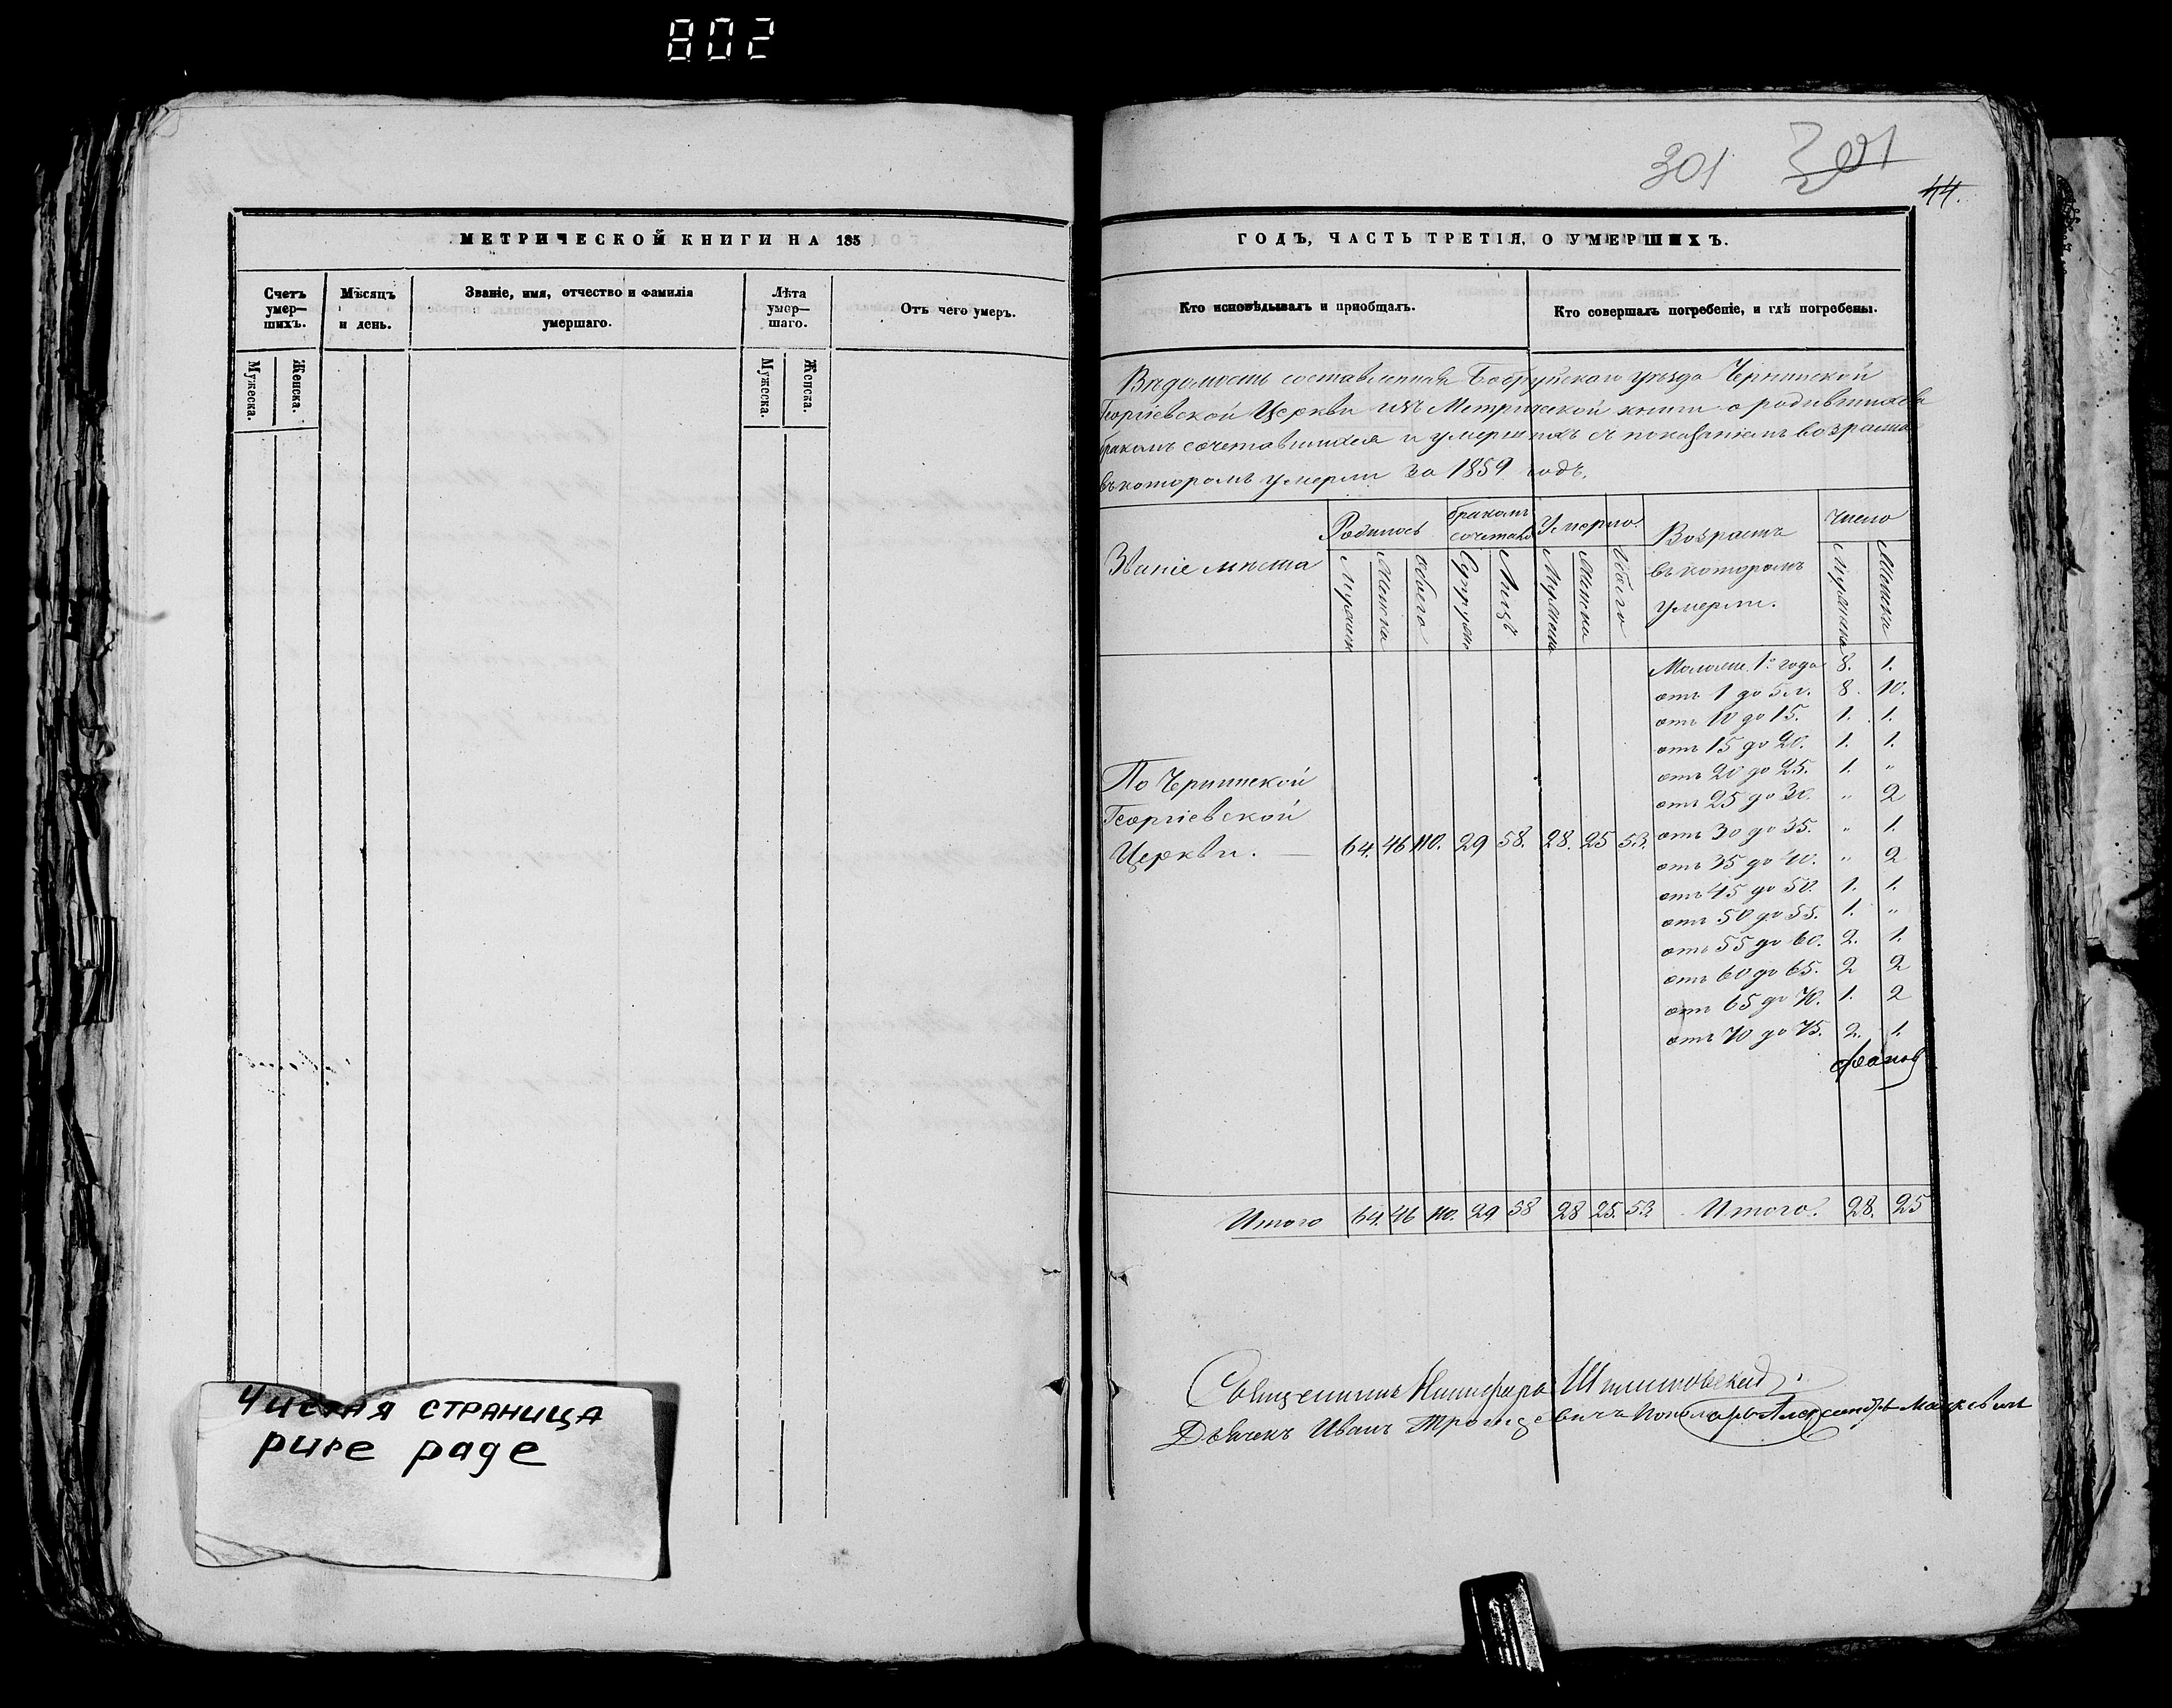 802
301 301
44.
МЕТРИЧЕСКОЙ КНИГИ НА 185
Счетъ умер—шихъ.
Мѣсяцъ и день.
Званіе, имя, отчество и фамилія умершаго.
Лѣта умер—шаго.
Отъ чего умеръ.
Мужеска. Женска.
Мужеска. Женска.
Чистая страница
pure page
ГОДЪ, ЧАСТЬ ТРЕТІЯ, О УМЕРШИХЪ.
Кто исповѣдывалъ и приобщалъ.
Кто совершалъ погребеніе, и гдѣ погребены.
Вѣдомость составленная Бобруйскаго уѣзда Чернинской
Георгіевской Церкви изъ Метрической книги о родившихся
бракомъ сочетавшихся и умершихъ съ показаніемъ возраста
въ которомъ умерли за 1859 годъ.
Званіе мѣста
Родилось
бракомъ сочетав
Умерло
Возрастъ въ которомъ умерли.
Число
Мужеска Женска Обоего Супруж Лицъ Мужеска Женска Обоего
Мужеска Женска
Моложе 1го года 8. 1.
отъ 1 до 5 л. 8. 10.
отъ 10 до 15. 1. 1.
отъ 15 до 20. 1. 1.
отъ 20 до 25. 1. "
отъ 25 до 30. " 2
отъ 30 до 35. " 1.
отъ 35 до 40. " 2
отъ 45 до 50. 1. 1.
отъ 50 до 55. 1. "
отъ 55 до 60. 2. 1.
отъ 60 до 65. 2 2
отъ 65 до 70. 1. 2
отъ 70 до 75. 2. 1.
По Чернинской
Георгіевской
Церкви. — 64. 46 110. 29 58. 28. 25 53.
Итого 64. 46 110. 29 58 28 25. 53. Итого. 28. 25
Священникъ
Дьячекъ Иванъ Троицевичъ Пономарь Александръ Мацкевичъ